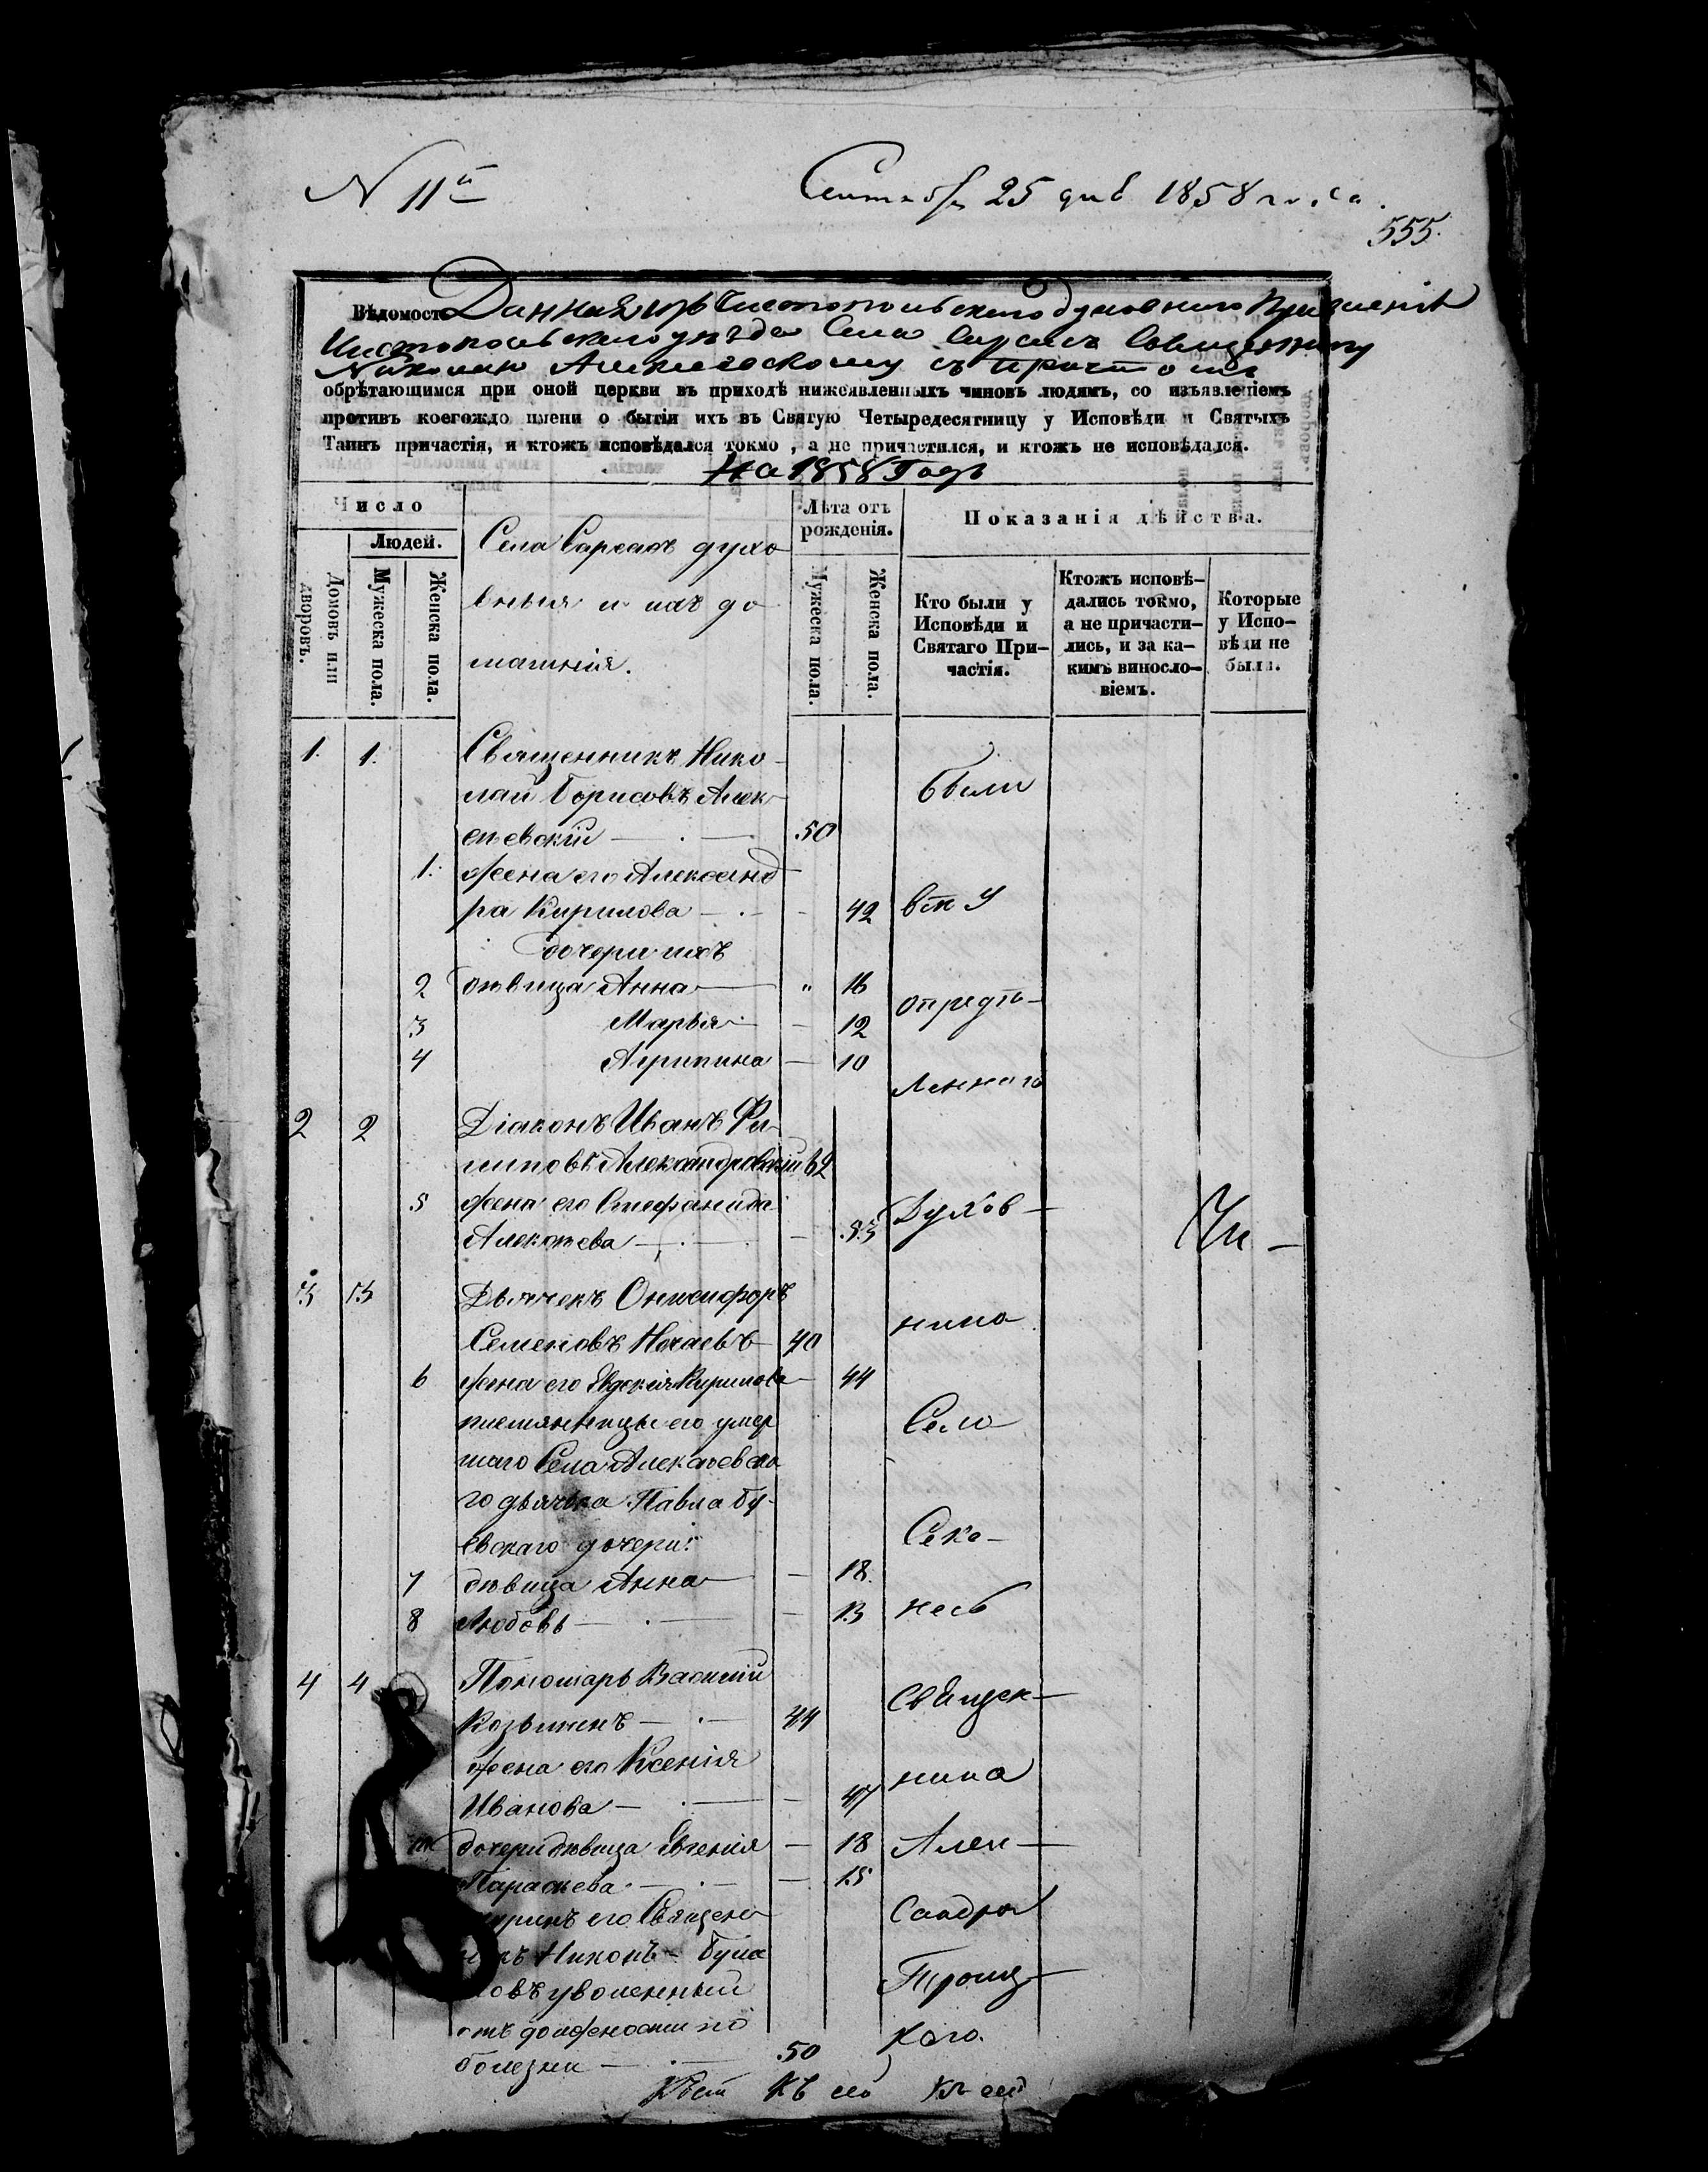 N 11й
Сентябр 25 днѣ 1858 года.
555.
Вѣдомость Данная изъ Чистопольскаго духовнаго Правленія
Чистопольскаго уѣзда Села Сарсасъ Священнику
Николаю Алексѣевскому съ причтомъ
обрѣтающимся при оной церкви въ приходѣ нижеявленныхъ чиновъ людямъ, со изъявленіемъ
противъ коегождо имени о бытіи ихъ въ Святую Четыредесятницу у Исповѣди и Святыхъ
Таинъ причастія, и ктожъ исповѣдался токмо, а не причастился, и ктожъ не исповѣдался.
На 1858 Годъ
Число
Людей.
Домовъ или дворовъ.
Мужеска пола.
Женска пола.
Села Сарсасъ духо
вныя и ихъ до
машнія.
Лѣта отъ
рожденія.
Мужеска пола.
Женска пола.
Показанія дѣйства.
Кто были у
Исповѣди и
Святаго При-
частія.
Ктожъ исповѣ-
дались токмо,
а не причасти-
лись, и за ка-
кимъ винословіемъ.
Которые
у Испо-
вѣди не
были.
1. 1. Священникъ Нико-
лай Борисовъ Алек-
сѣевскій 50
были
1. жена его Александ
ра Кирилова 42
дочери ихъ
2 дѣвица Анна " 16
опредѣ-
3 Марья 12
4 Агрипина 10
леннаго
2 2 Діаконъ Иванъ Фи-
липовъ Александровскій
5 жена его Стефанида
Духов-
Алексѣева
3 3 Дьячекъ Онисифоръ
ника
Семеновъ Ногаевъ 40
6 жена его Евдокія Кирилова 44
племянницы его умер
Село
шаго Села Алексѣевска
го дьячка Павла Бу-
евскаго дочери:
7 дѣвица Анна 18.
8 Любовь 13
4 4 Пономарь Василій
Священ-
Козьминъ 44
жена его Ксенія
ника
Иванова 47
дочери дѣвица Евгенія 18
Алек-
Параскева 15
его Священ
сандра
Никонъ
Троиц-
уволенный
отъ должности по
каго.
болезни 50